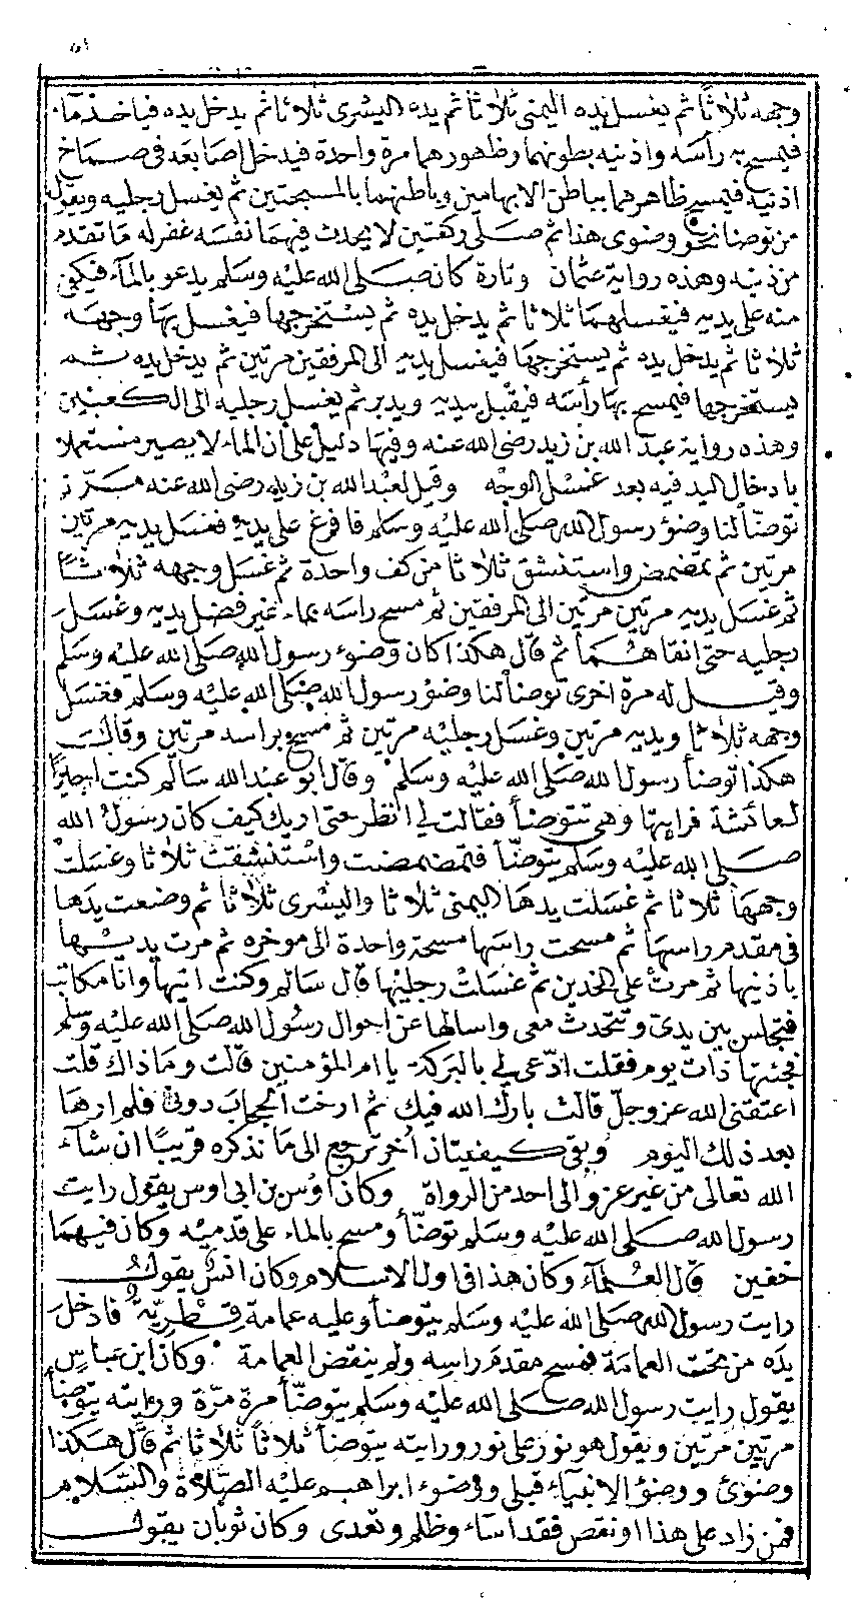 وجهه ثلاثا ثم يغسل يده اليمنى ثلاثا ثم يده اليسرى ثلاثا ثم يدخل يده فياخذ ماء
فيمسح به رأسه واذنيه بطونهما وظهورهما مرة واحدة فيدخل اصابعه في صماخ
اذنيه فيمسح ظاهرهما بباطن الابهامين وباطنهما بالمسبحتين ثم يغسل رجليه ويقول
من توضأ نحو وضوئ هذا ثم صلى ركعتين لا يحدث فيهما نفسه غفر له ما تقدم
من ذنبه وهذه رواية عثمان وتارة كان صلى الله عليه وسلم يدعو بالماء فيكفئ
منه على يديه فيغسلهما ثلاثا ثم يدخل يده ثم يستخرجها فيغسل بها وجهه
ثلاثا ثم يدخل يده ثم يستخرجها فيغسل يديه الى المرفقين مرتين ثم يدخل يده ثم
يستخرجها فيمسح بها رأسه فيقبل بيديه ويدبر ثم يغسل رجليه الى الكعبين
وهذه رواية عبد الله بن زيد رضى الله عنه وفيها دليل على أن الماء لا يصير مستعملا
بادخال اليد فيه بعد غسل الوجه وقيل لعبد الله بن زيد رضى الله عنه مرة
توضأ لنا وضوء رسول الله صلى الله عليه وسلم فافرغ على يديه فغسل يديه مرتين
مرتين ثم تمضمض واستنشق ثلاثا من كف واحدة ثم غسل وجهه ثلاثا
ثم غسل يديه مرتين مرتين الى المرفقين ثم مسح راسه بماء غير فضل يديه وغسل
رجليه حتى انقاهما ثم قال هكذا كان وضوء رسول الله صلى الله عليه وسلم
وقيل له مرة اخرى توضأ لنا وضوء رسول الله صلى الله عليه وسلم فغسل
وجهه ثلاثا ويديه مرتين وغسل رجليه مرتين ثم مسح براسه مرتين وقال
هكذا توضأ رسول الله صلى الله عليه وسلم وقال ابو عبد الله سالم كنت اجيرا
لعائشة فرايتها وهي تتوضأ فقالت لي انظر حتى اريك كيف كان رسول الله
صلى الله عليه وسلم يتوضأ فتمضمضت واستنشقت ثلاثا وغسلت
وجهها ثلاثا ثم غسلت يدها اليمنى ثلاثا واليسرى ثلاثا ثم وضعت يدها
في مقدم راسها ثم مسحت راسها مسحة واحدة الى موخره ثم مرت بديها
باذنيها ثم مرت على الخدين ثم غسلت رجليها قال سالم وكنت اتيها وانا مكاتب
فتجلس بين يدي وتتحدث معى واسالها عن احوال رسول الله صلى الله عليه وسلم
فجئتها ذات يوم فقلت ادعى لي بالبركة يا ام المؤمنين قالت وما ذاك قلت
اعتقنى الله عز وجل قالت بارك الله فيك ثم ارخت الحجاب دونى فلم ارها
بعد ذلك اليوم وبقى كيفيتان أخر ترجع الى ما نذكره قريبا ان شاء
الله تعالى من غير عزو الى احد من الرواة وكان اوس بن ابى اوس يقول رايت
رسول الله صلى الله عليه وسلم توضأ ومسح بالماء على قدميه وكان فيهما
خفين قال العلماء وكان هذا في اول الاسلام وكان انس يقول
رايت رسول الله صلى الله عليه وسلم يتوضأ وعليه عمامة قطرية فادخل
يده من تحت العمامة فمسح مقدم راسه ولم ينقض العمامة وكان ابن عباس
يقول رايت رسول الله صلى الله عليه وسلم يتوضأ مرة مرة ورايته يتوضأ
مرتين مرتين ويقول هو نور على نور ورايته يتوضأ ثلاثا ثلاثا ثم قال هكذا
وضوئ ووضوء الانبياء قبلي ووضوء ابراهيم عليه الصلاة والسلام
فمن زاد على هذا او نقص فقد اساء وظلم وتعدى وكان ثوبان يقول